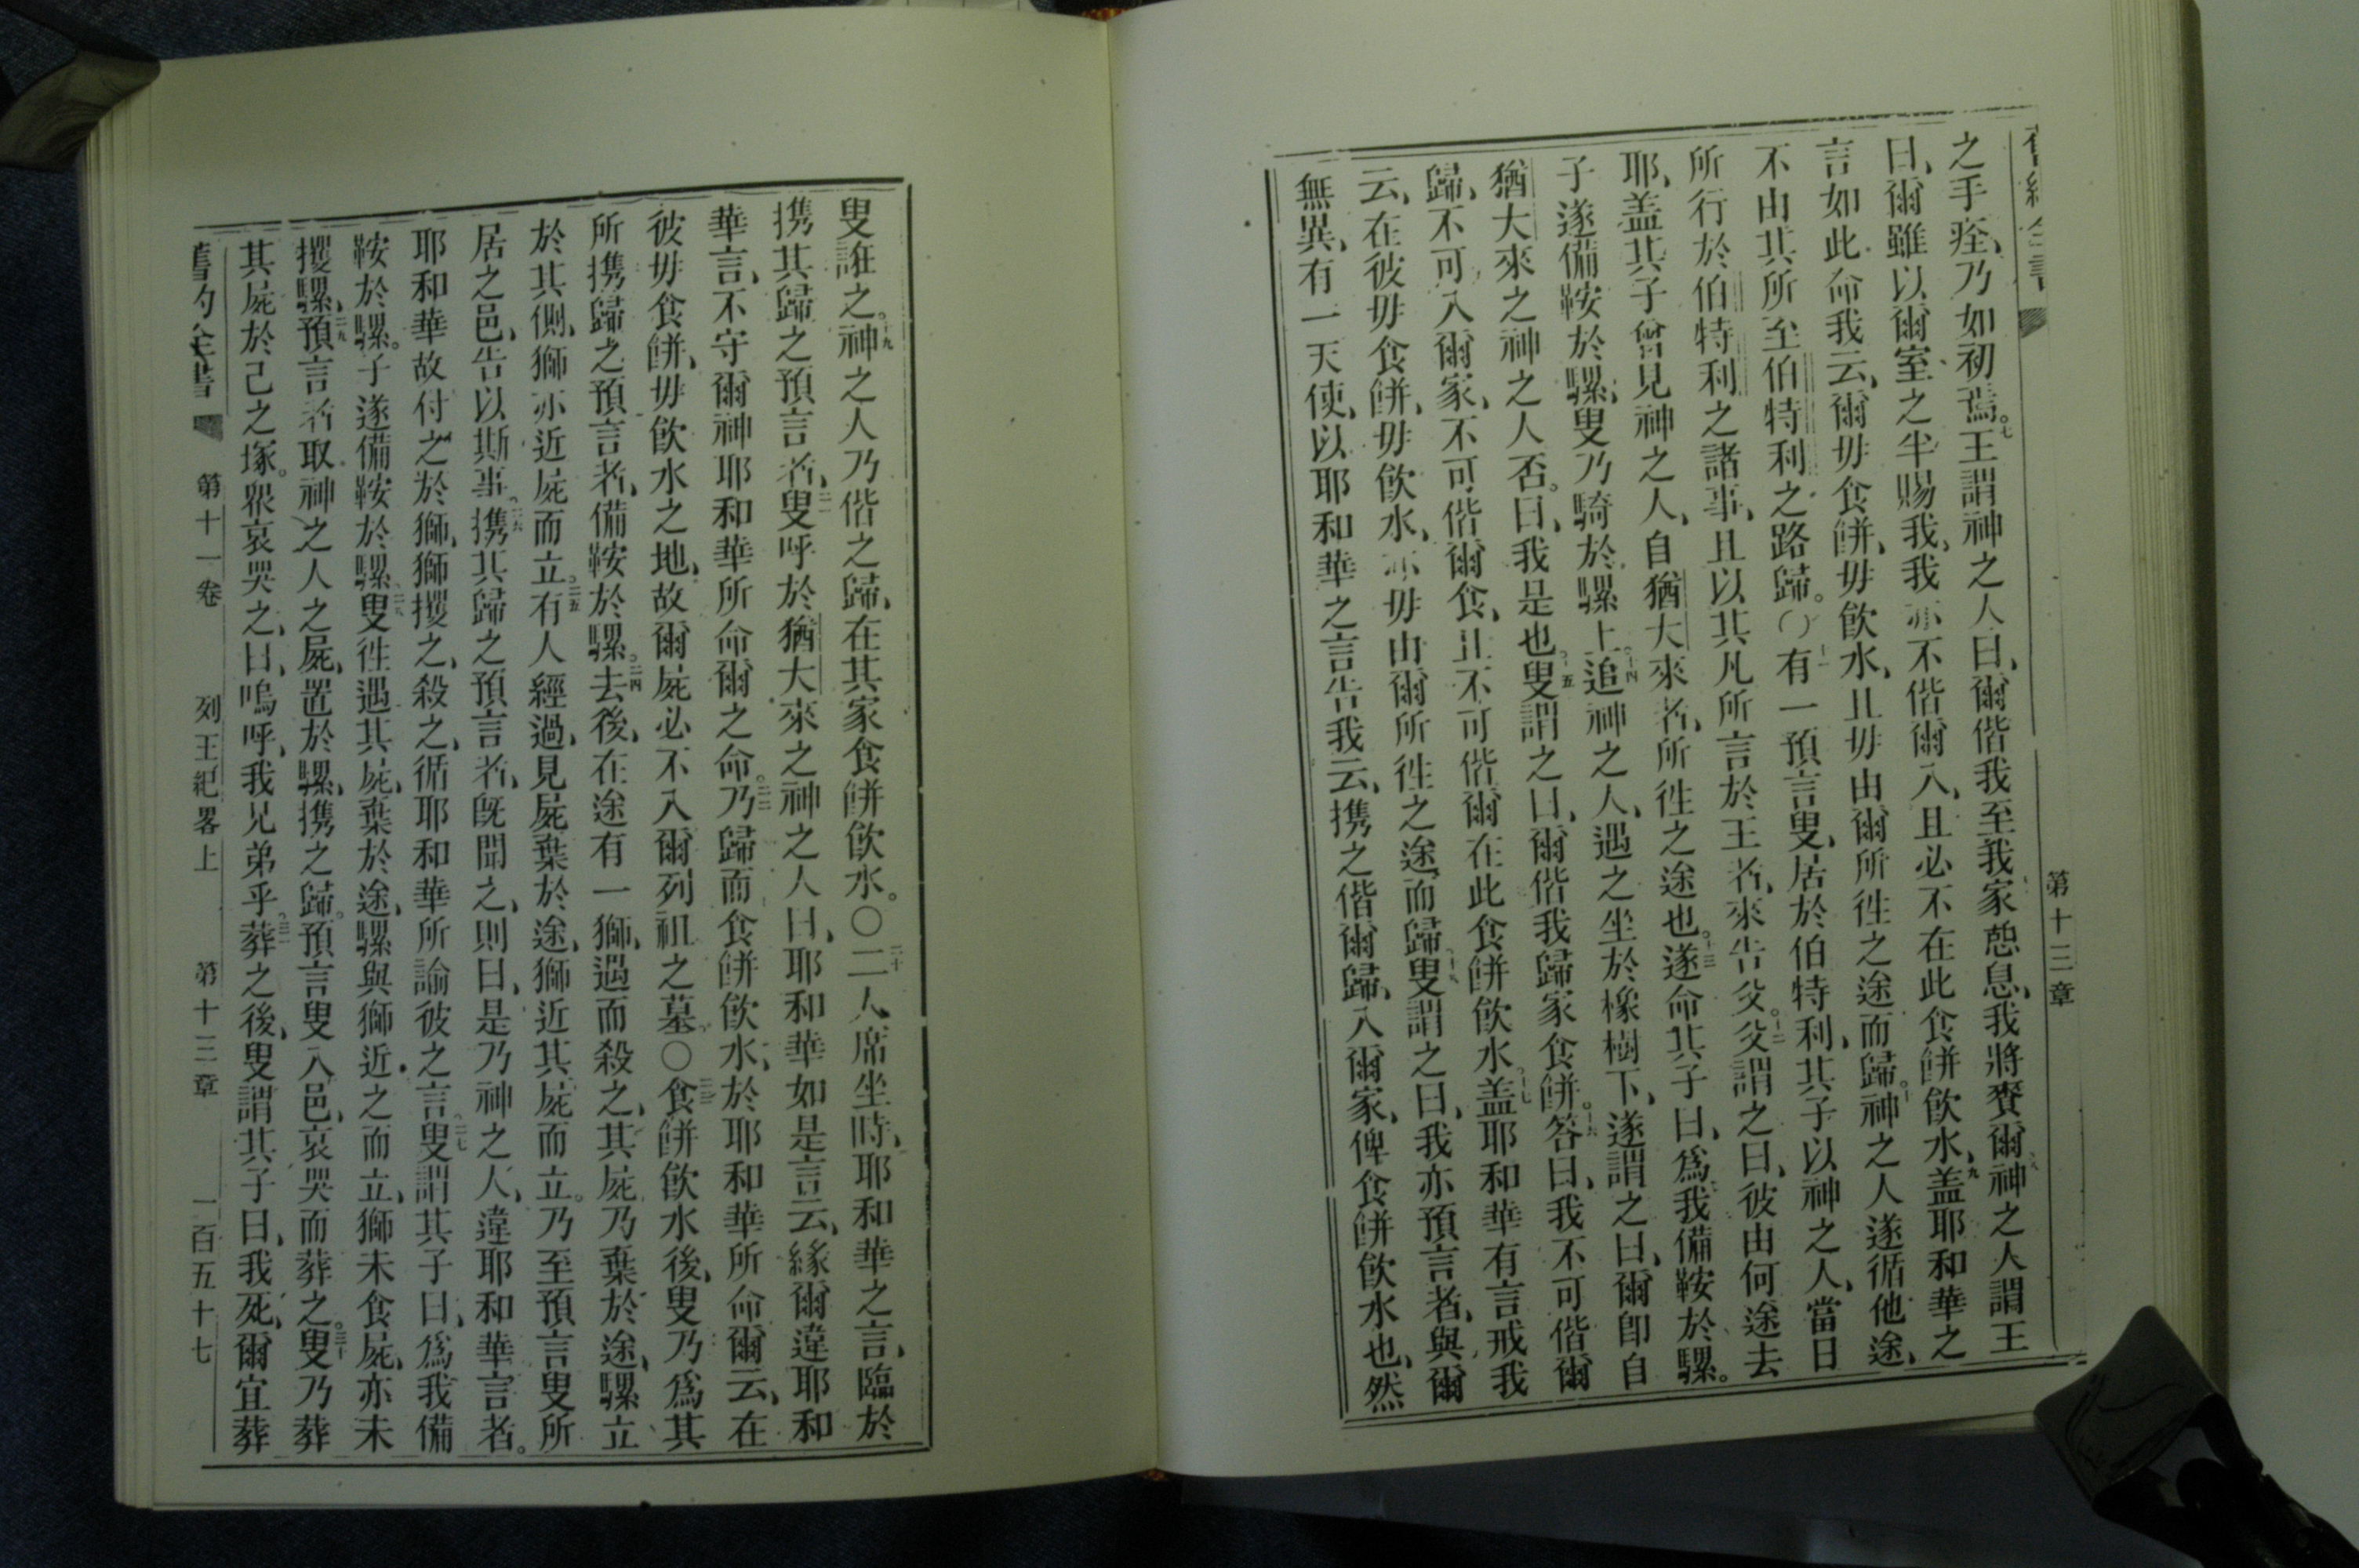 第十三章
之手痊、乃如初焉。七王謂神之人曰、爾偕我至我家憩息、我將賚爾、八神之人謂王
曰、爾雖以爾室之半賜我、我亦不偕爾入、且必不在此食餅飲水、九盖耶和華之
言如此命我云、爾毋食餅、毋飲水、且毋由爾所徃之途而歸。十神之人遂循他途、
不由其所至伯特利之路歸。〇十一有一預言叟、居於伯特利、其子以神之人、當日
所行於伯特利之諸事、且以其凡所言於王者、來告父。十二父謂之曰、彼由何途去
耶、盖其子曾見神之人、自猶大來者、所徃之途也。十三遂命其子曰、爲我備鞍於騾。
子遂備鞍於騾、叟乃騎於騾上。十四追神之人、遇之坐於橡樹下、遂謂之曰、爾卽自
猶大來之神之人否。曰、我是也。十五叟謂之曰、爾偕我歸家食餅。十六答曰、我不可偕爾
歸、不可入爾家、不可偕爾食、且不可偕爾在此食餅飲水、十七盖耶和華有言戒我
云、在彼毋食餅、毋飲水、亦毋由爾所徃之途而歸。十八叟謂之曰、我亦預言者、與爾
無異、有一天使、以耶和華之言告我云、携之偕爾歸、入爾家、俾食餅飲水也、然
叟誑之。十九神之人乃偕之歸、在其家食餅飲水。〇二十二人席坐時、耶和華之言、臨於
携其歸之預言者、二一叟呼於猶大來之神之人曰、耶和華如是言云、緣爾違耶和
華言、不守爾神耶和華所命爾之命。二二乃歸而食餅飲水、於耶和華所命爾云、在
彼毋食餅、毋飲水之地、故爾屍必不入爾列祖之墓。〇二三食餅飲水後、叟乃爲其
所携歸之預言者、備鞍於騾。二四去後、在途有一獅、遇而殺之、其屍乃棄於途、騾立
於其側、獅亦近屍而立。二五有人經過、見屍棄於途、獅近其屍而立。乃至預言叟所
居之邑、告以斯事。二六携其歸之預言者、旣聞之、則曰、是乃神之人、違耶和華言者。
耶和華故付之於獅、獅攫之、殺之、循耶和華所諭彼之言。二七叟謂其子曰、爲我備
鞍於騾。子遂備鞍於騾、二八叟徃遇其屍、棄於途、騾與獅近之而立、獅未食屍、亦未
攫騾、二九預言者取神之人之屍、置於騾、携之歸。預言叟入邑、哀哭而葬之。三十叟乃葬
其屍於己之塚。衆哀哭之、曰、嗚呼、我兄弟乎。三一葬之後、叟謂其子曰、我死、爾宜葬
舊約全書 第十一卷 列王紀畧上 第十三章 一百五十七